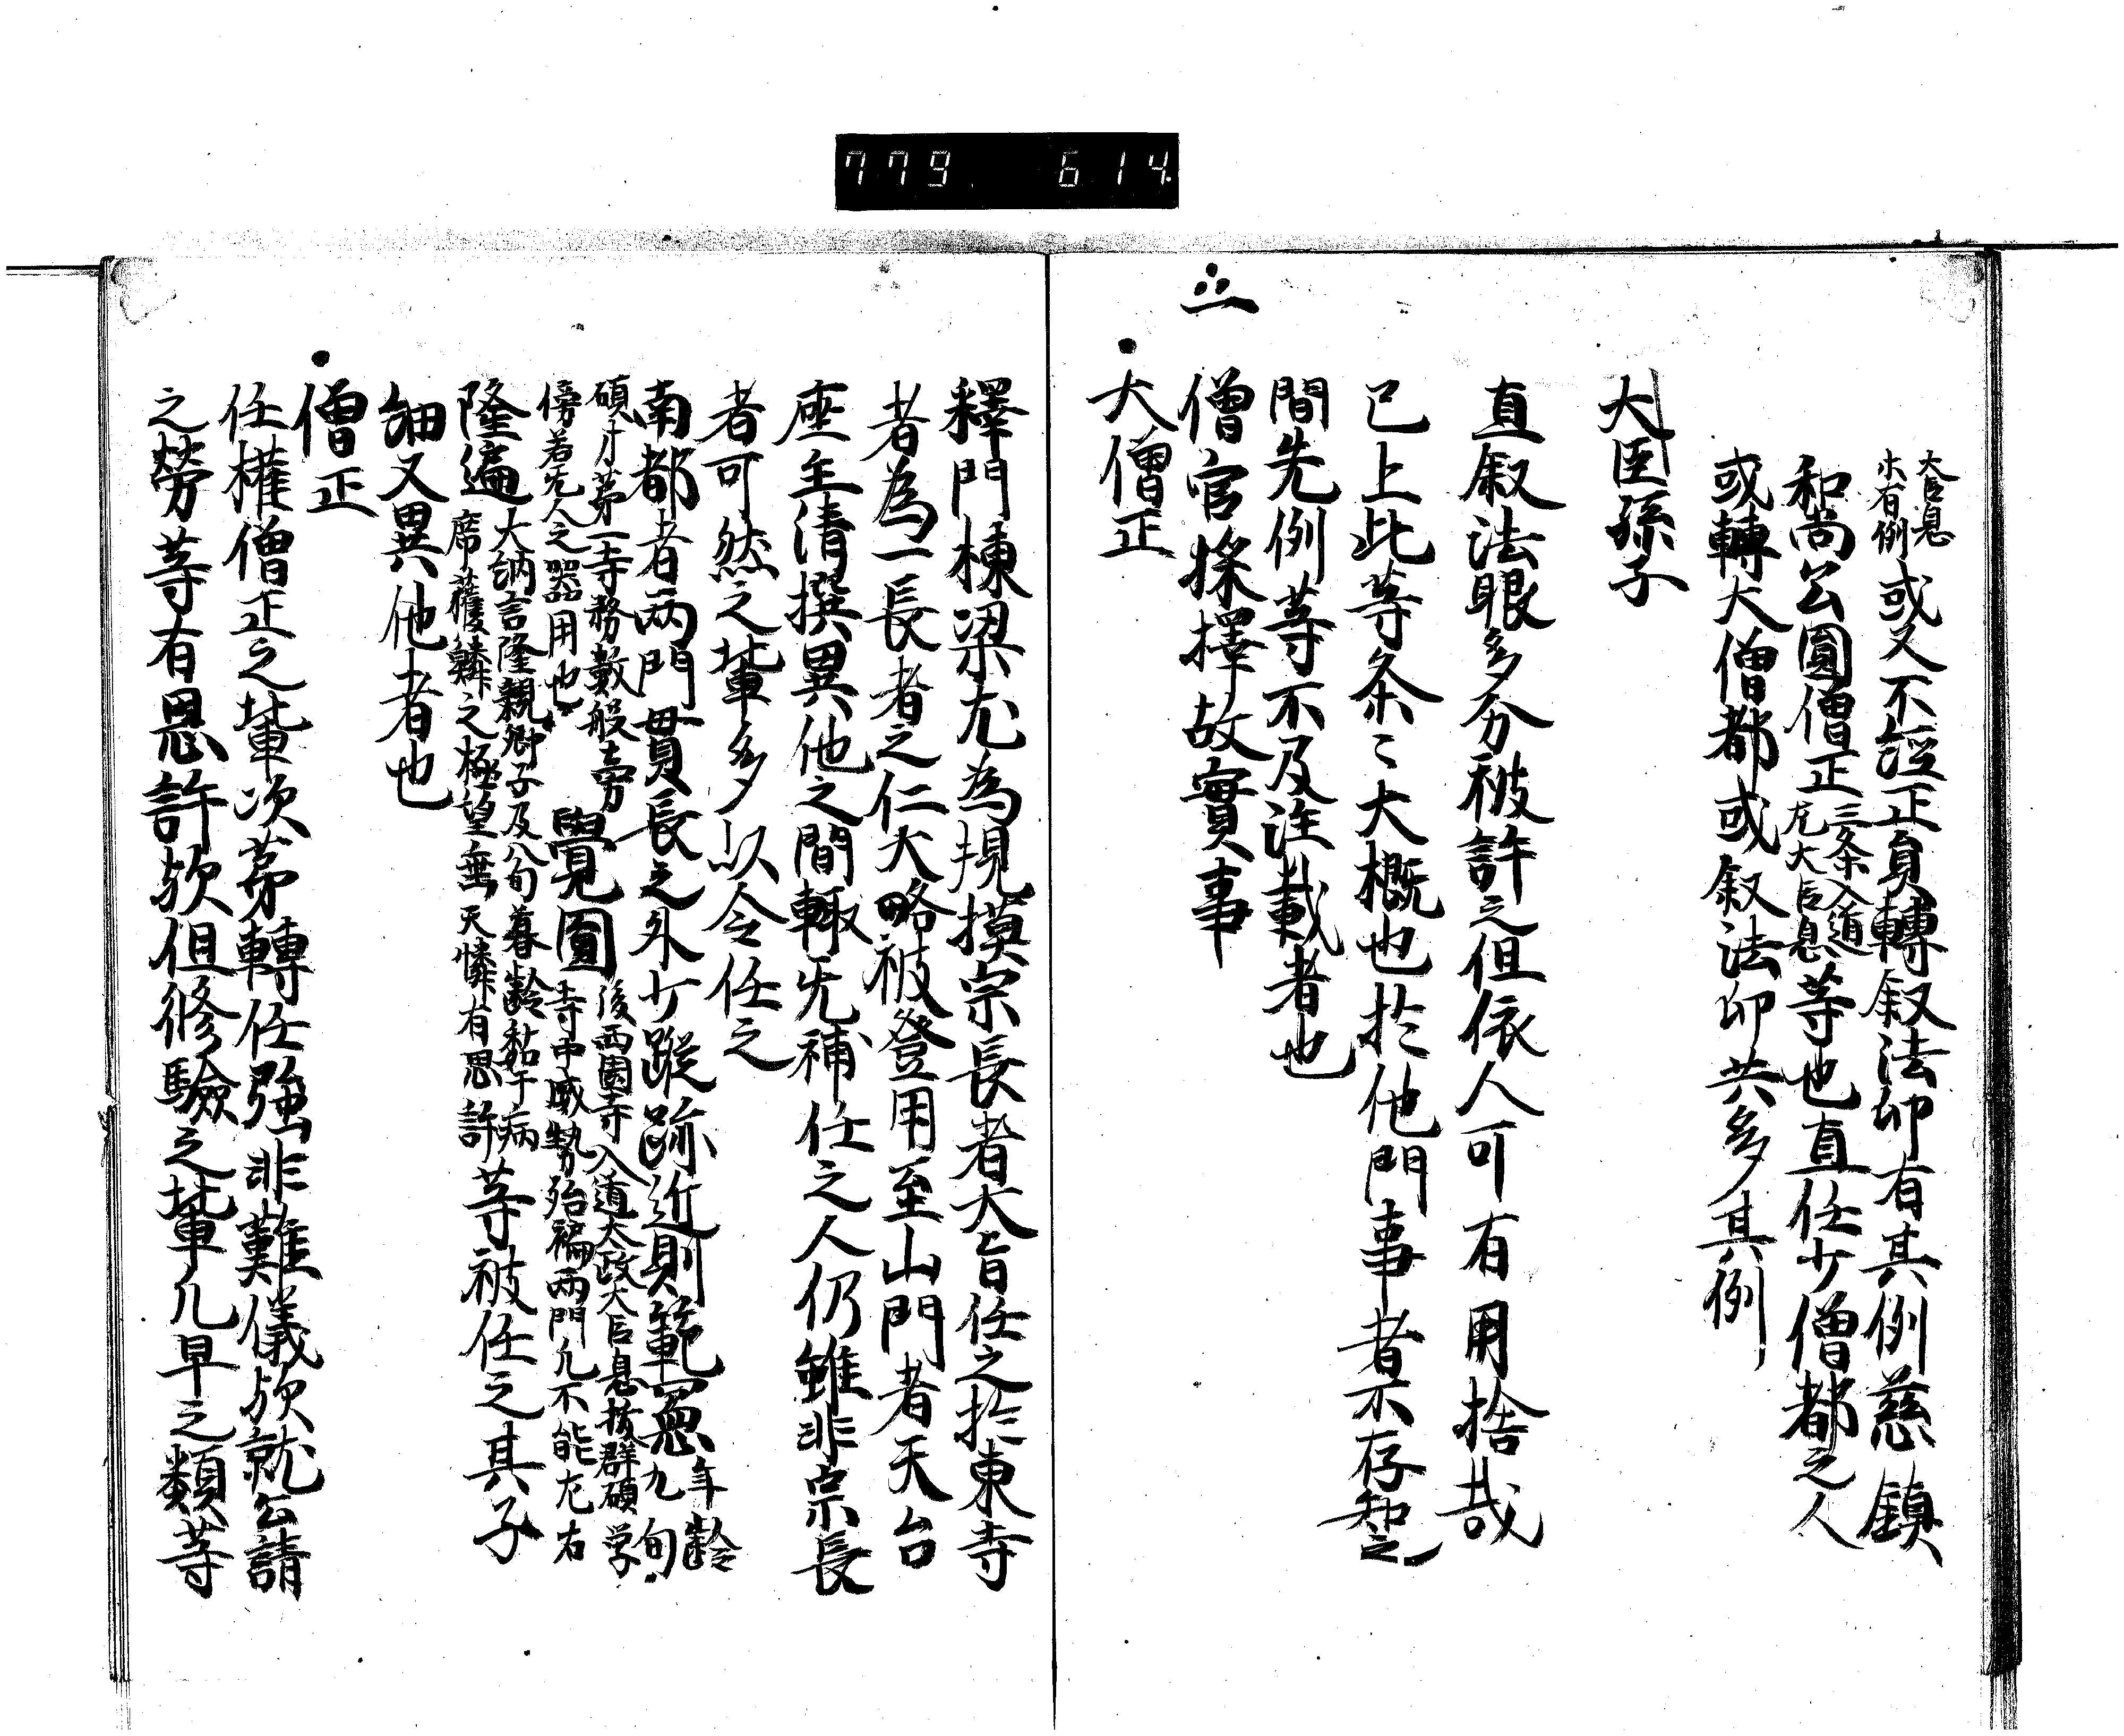 779 614
大臣息
小有例 或又不経正員轉叙法印有其例慈鎮
和尚公圓僧正 三条入道
左大臣息 等也直任少僧都之人
或轉大僧都或叙法印共多其例
大臣孫子
直叙法眼多分被許之但依人可有用捨哉
已上此等条々大概也於他門事者不存知之
間先例等不及注載者也
一 僧官採擇故實事
大僧正
釋門棟梁尤為規摸宗長者大旨任之於東寺
者為一長者之仁大略被登用至山門者天台
座主清撰異他之間輙无補任之人仍雖非宗長
者可然之輩多以令任之
南都者兩門貫長之外少蹤跡近則範憲 年齡
九旬
碩才第一寺務數般旁
傍若无人之器用也 覺圓 後西園寺入道太政大臣息抜群碩学
寺中威勢殆褊兩門凡不能左右
隆遍 大納言隆親卿子及八旬暮齡黏于病
席獲鱗之極望垂天憐有恩許 等被任之其子
細又異他者也
僧正
任權僧正之輩次第轉任強非難儀欤就公請
之勞等有恩許欤但修驗之輩凡早之類等